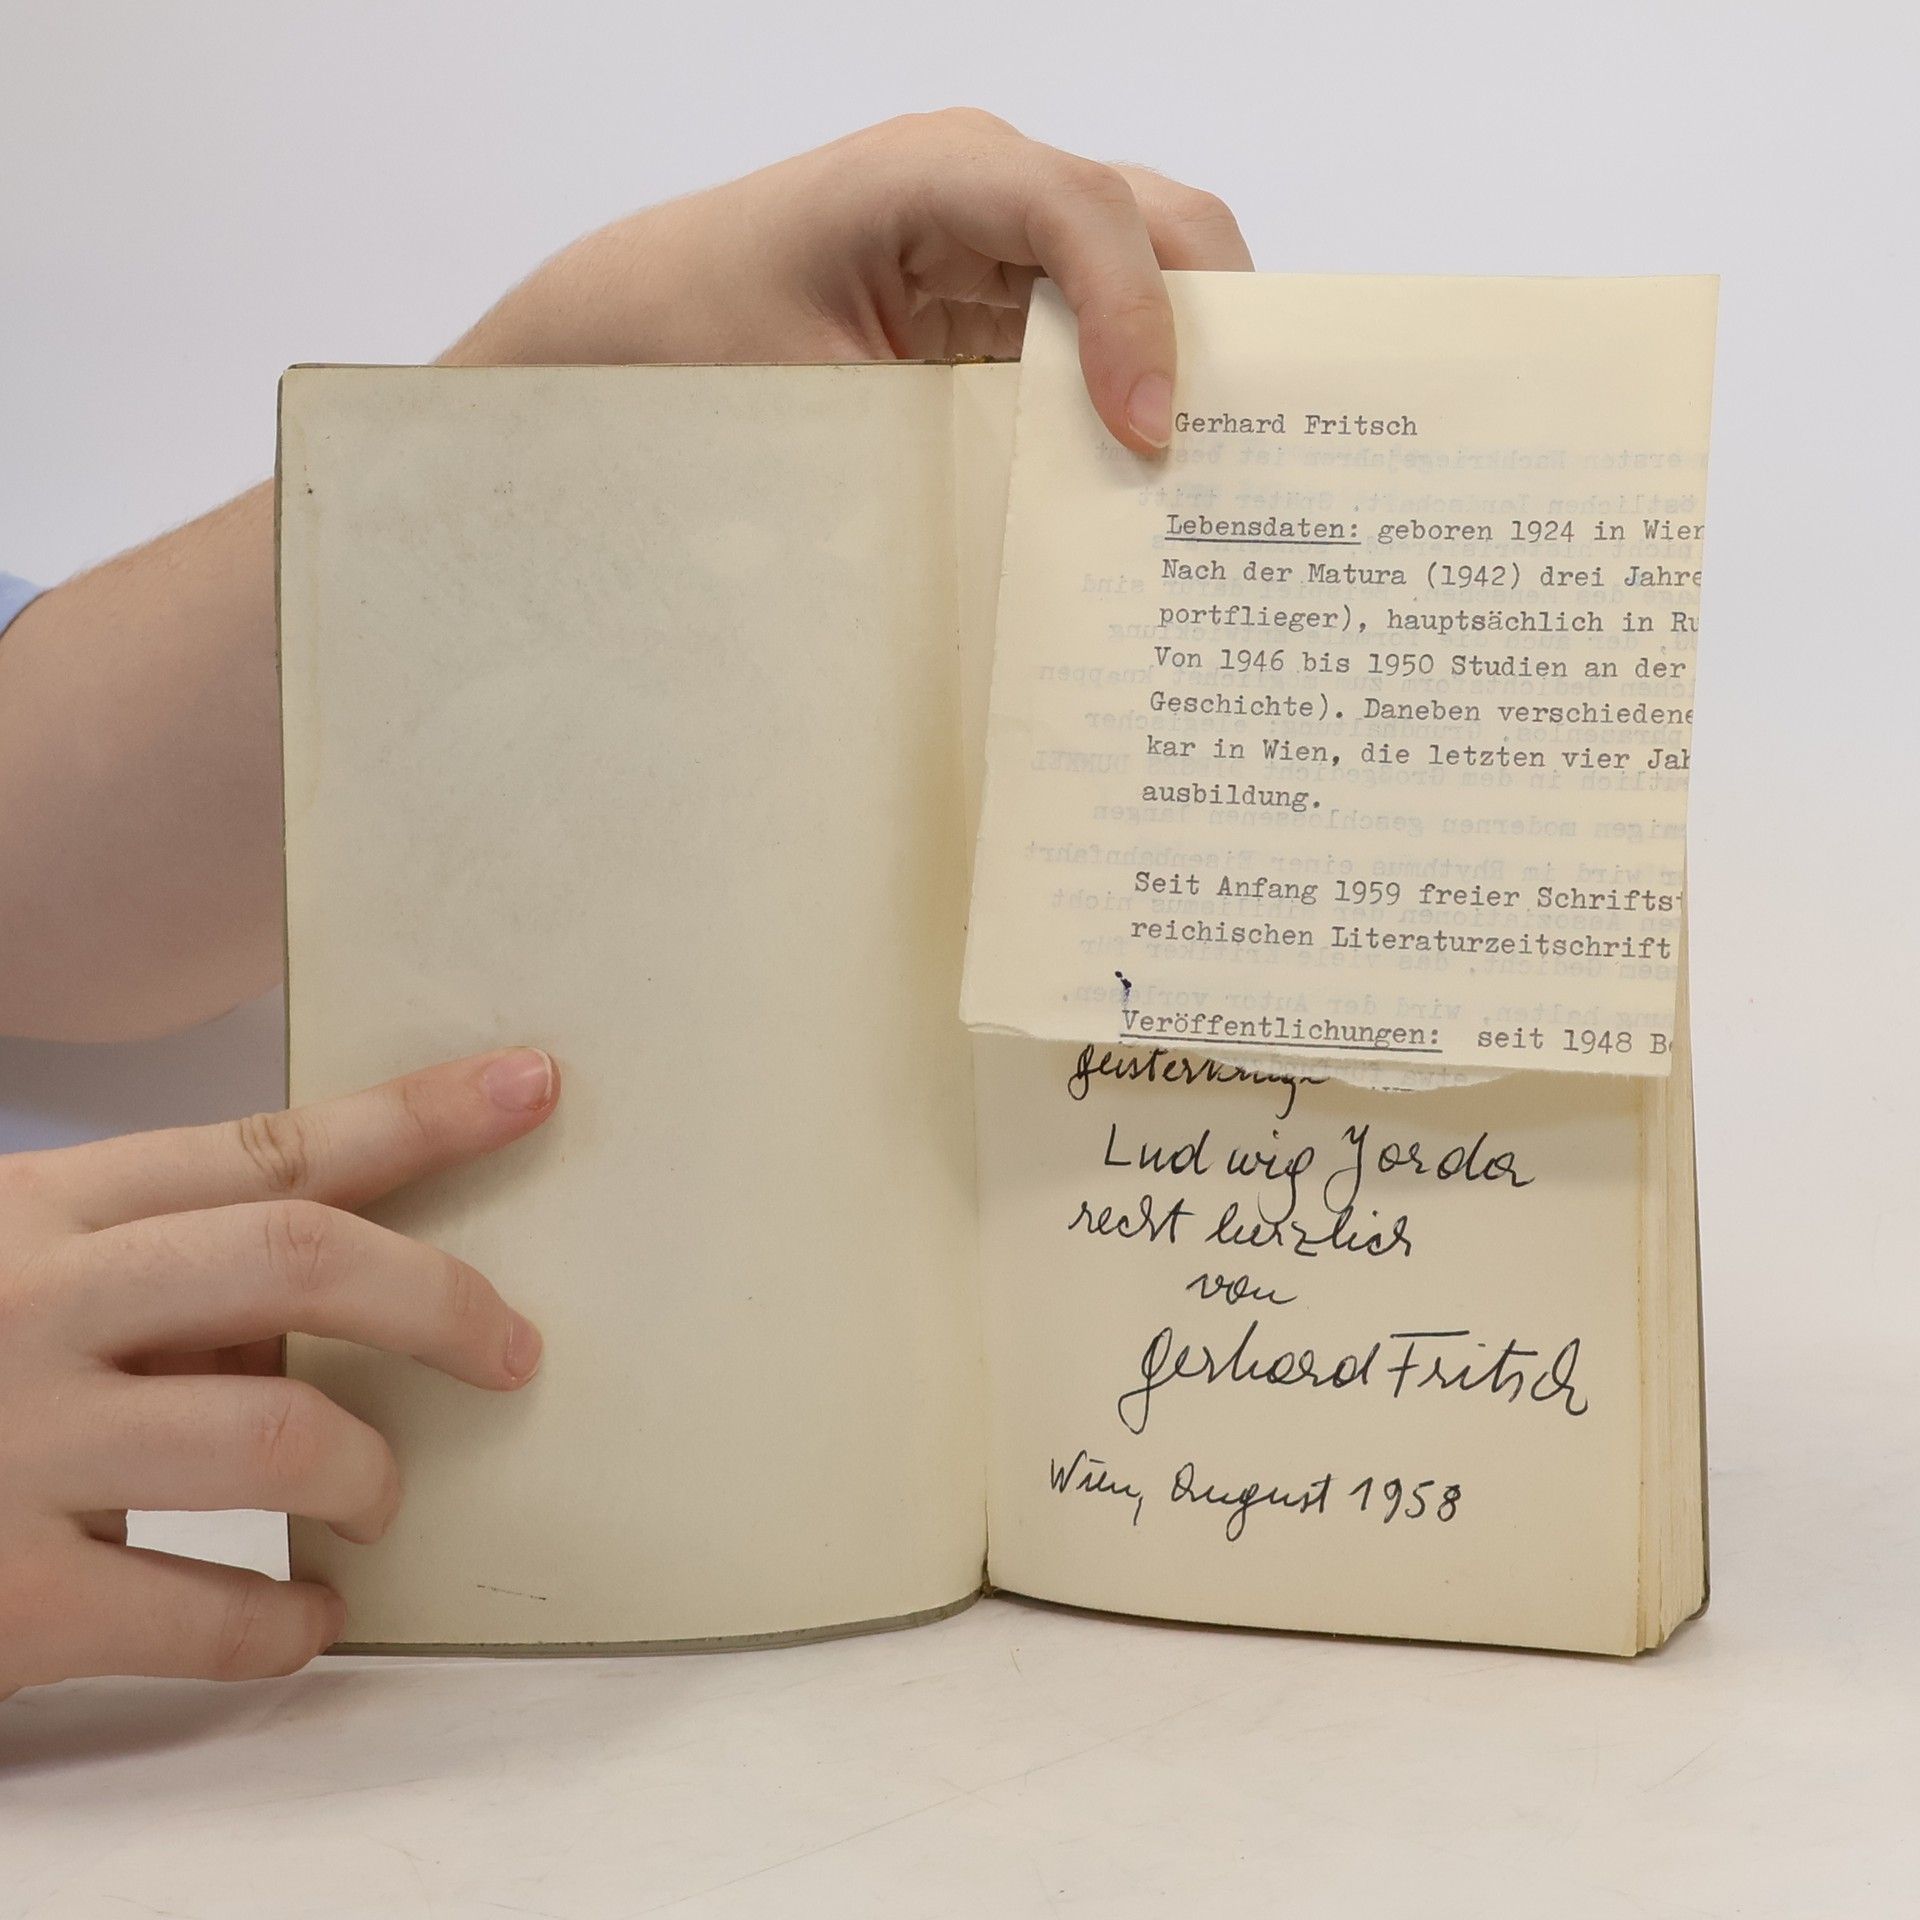 Gerhard Fritsch
Lebensdaten: geboren 1924 in Wien
Nach der Matura (1942) drei Jahre
portflieger), hauptsächlich in Ru
Von 1946 bis 1950 Studien an der
Geschichte). Daneben verschiedene
kar in Wien, die letzten vier Jah
ausbildung.
Seit Anfang 1959 freier Schriftst
reichischen Literaturzeitschrift
Veröffentlichungen: seit 1948 Be
Ludwig Jorda
recht herzlich
von
Gerhard Fritsch
Wien, August 1958